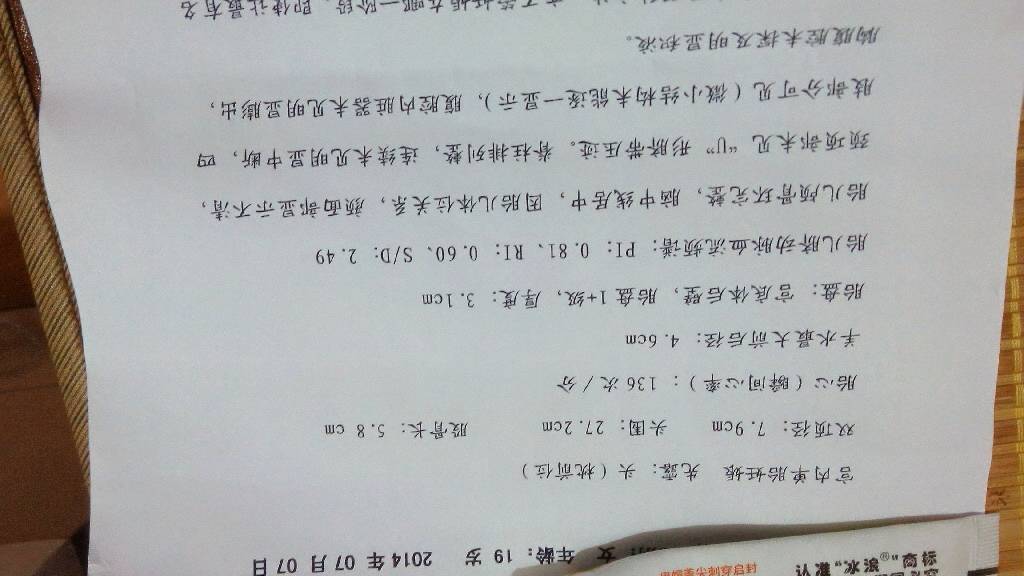 女 年龄: 19 岁 2014 年 07 月 07 日
宫内单胎妊娠 先露: 头 (枕前位)
双顶径: 7.9cm 头围: 27.2cm 股骨长: 5.8 cm
胎心 (瞬间心率) : 136 次 / 分
羊水最大前后径: 4.6cm
胎盘: 宫底体后壁, 胎盘 1+级, 厚度: 3.1cm
胎儿脐动脉血流频谱: PI: 0.81、RI: 0.60、S/D: 2.49
胎儿颅骨环完整, 脑中线居中, 因胎儿体位关系, 颜面部显示不清,
颈项部未见 “U” 形脐带压迹。脊柱排列整, 连续未见明显中断, 四
肢部分可见 (微小结构未能逐一显示), 腹腔内脏器未见明显膨出,
胸腹腔未探及明显积液。
认准“冰浪®”商标